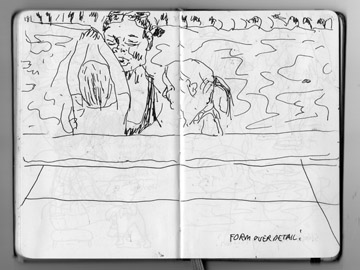 FORM OVER DETAIL!